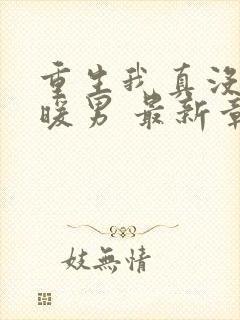 重生我真没
暖男 最新章
妓無情